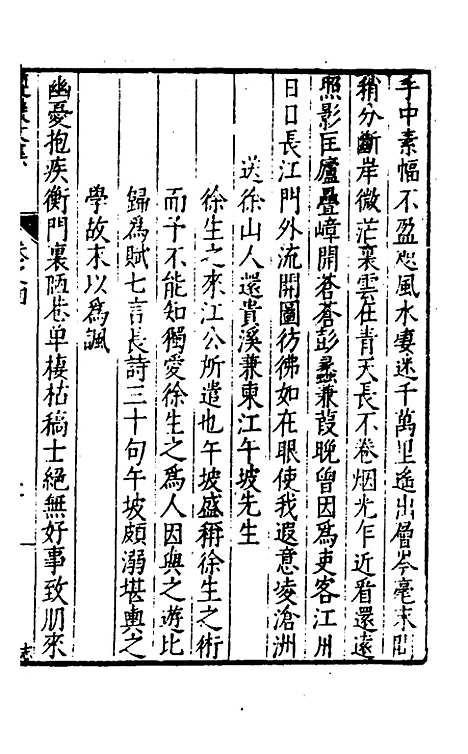 手中素幅不盈咫風水凄迷千萬里遙出層岑毫末間
稍分斷岸微茫裏雲在青天長不卷烟光乍近看還遠
照影匡廬疊嶂開蒼蒼彭蠡兼葭晚曾因為吏客江州
日日長江門外流開圖彷彿如在眼使我遐意凌滄洲
送徐山人還貴溪兼柬江午坡先生
徐生之來江公所遣也午坡盛稱徐生之術
而予不能知獨愛徐生之爲人因與之遊比
歸爲賦七言長詩三十句午坡頗溺堪輿之
學故末以爲諷
幽憂抱疾衡門裏陋巷单棲枯稿士絕無好事致朋來